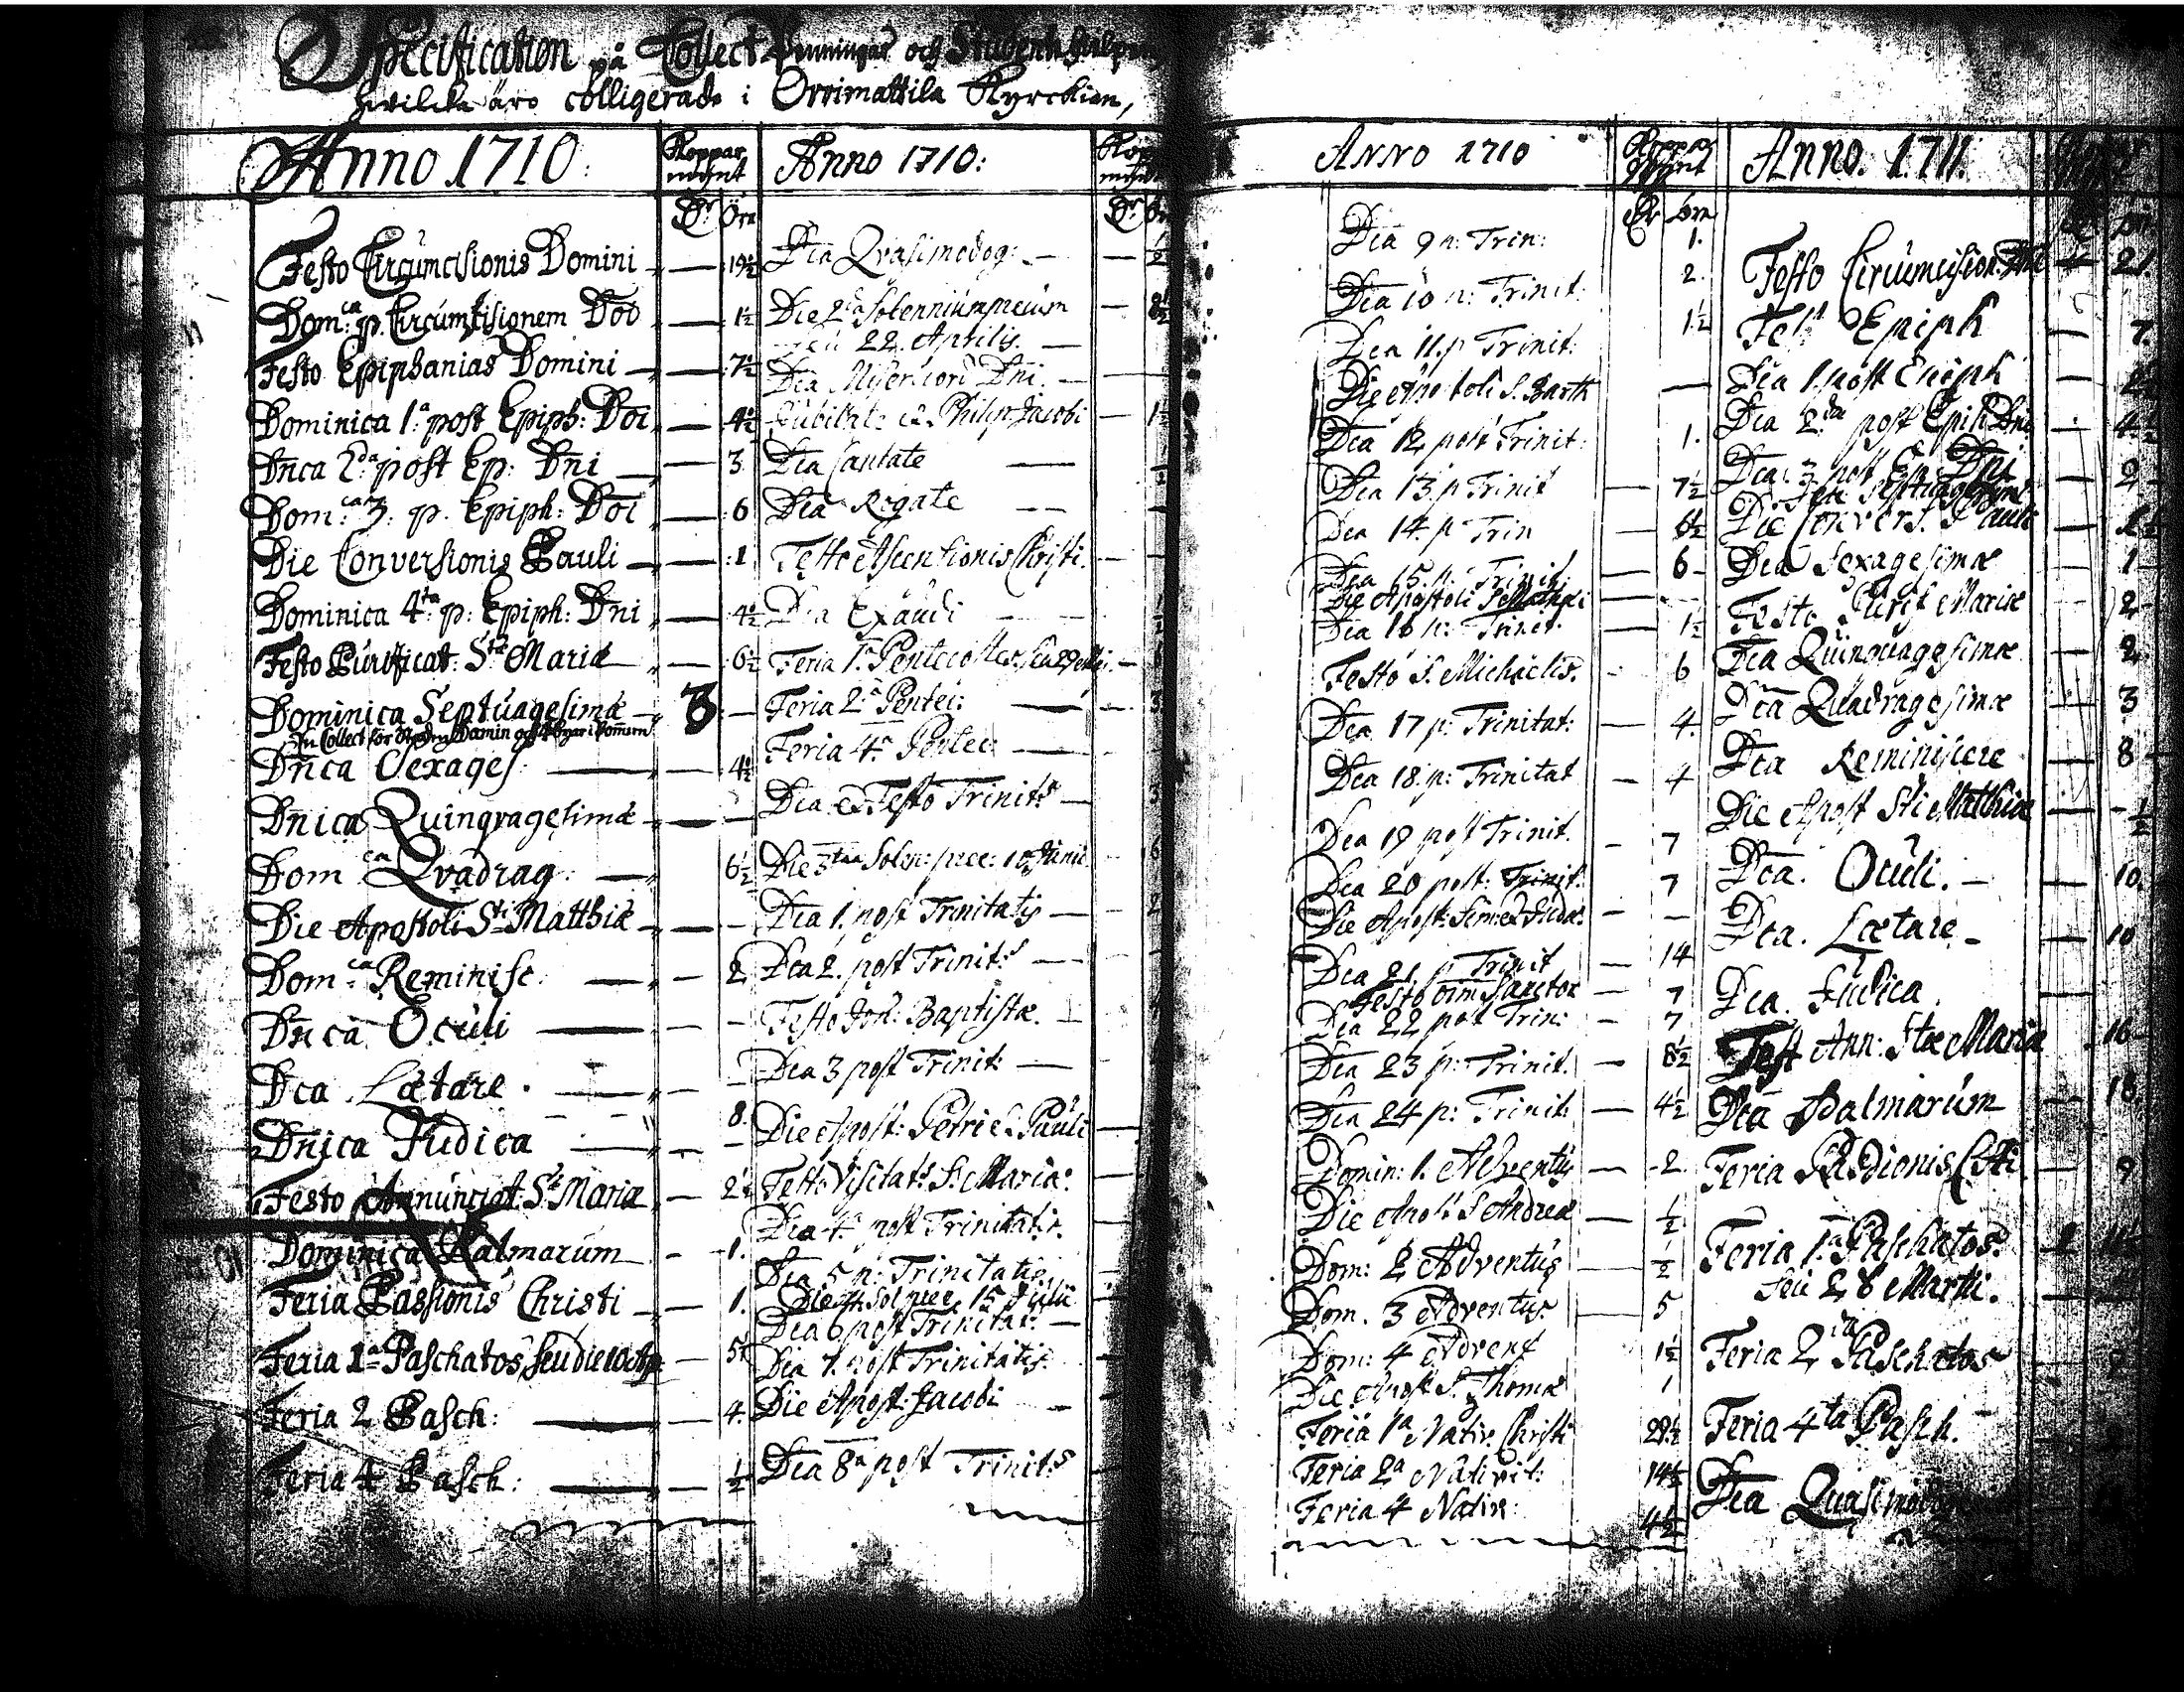 Specification på Collect Penningar och
hvilcka äro colligerade i Orrimattila Kyrckian,
Anno 1710:
Koppar mÿnt
Dr Öre
Festo Circumcisionis Domini — 19½
Dom:ca p. Circumcisionem Doi — 1½
Festo Epiphanias Domini — 7½
Dominica 1a post Epiph: Doi — 4½
Dnca 2da post Ep: Dni — 3
Dom:ca 3: p. Epiph: Doi — 6
Die Conversionis Pauli — 1
Dominica 4ta p: Epiph: Dni — 4½
Festo Purificat: Stæ Mariæ — 6½
Dominica Septuagesimæ — 3 —
Dnca Sexages: — 4½
Dnica Quinqvagesimæ — —
Dom ca Qvadrag: — 6½
Die Apostoli Sti Matthiæ — —
Dom:ca Reminisc: — 2
Dnca Oculi — —
Dca Lætare — —
8.
Dnica Judica — —
Festo Annunciat: Stæ Mariæ — 2½
Dominica Palmarum — 1.
Feria Passionis Christi — 1.
Feria 1a Paschatos seu die 10 Ap — 5½
Feria 2 Pasch: — 4.
Feria 4 Pasch: — ½
Anno 1710:
Dca Qvasimodog: —
Die 2da Solennium precum —
seu 22 Aprilis. —
Dca Misericord Dni. —
Jubilate et Philip Jacobi — 1½
Dca Cantate —
Dca Rogate —
Festo Ascensionis Christi. —
Dca Exaudi —
Feria 1a Pentecostes, seu 29 Mei. —
Feria 2a Pentec: — 3
Feria 4a Pentec: —
Dca et Festo Trinit:s —
Die 3tia Solen: prec: 10 Junii — 6
Dca 1. post Trinitatis — 2
Dca 2. post Trinit:s —
Festo Joh: Baptistæ. —
Dca 3 post Trinit: —
Die Apost: Petri et Pauli —
Festo Visitat:s S: Mariæ: —
Dca 4a post Trinitatis. —
Dca 5 p: Trinitatis
Die 4 Sol prec. 15 Julii
Dca 6 post Trinitat: —
Dca 7. post Trinitatis
Die Apost: Jacobi —
Dca 8a post Trinit:s
Anno 1710
Koppr Mynt
Dr öre
Dca 9 p: Trin: 1.
Dca 10 p: Trinit: 2.
Dca 11. p Trinit: 1½
Die Apostoli S. Barth —
Dca 12 post Trinit: 1.
Dca 13. p Trinit — 7½
Dca 14. p Trin — 6½
Dca 15. p: Trinit — 6
Die Apostoli S Matthæi — —
Dca 16 p: Trinit. — 1½
Festo S. Michaelis. — 6
Dca 17 p: Trinitat: — 4.
Dca 18. p: Trinitat — 4
Dca 19 post Trinit. — 7
Dca 20 post: Trinit: 7
Die Apost: Sim: et Judæ: — —
Dca 21 p Trinit — 14
Festo Oim Sanctor — 7
Dca 22 post Trin: — 7
Dca 23 p: Trinit. — 8½
Dca 24 p: Trinit: — 4½
Domin: 1. Adventus — 2
Die Apost: S Andreæ — ½
Dom: 2 Adventus — ½
Dom. 3 Adventus. — 5
Dom: 4 Advent 1½
Die Apost S. Thomæ 1
Feria 1a Nativ. Christi 29½
Feria 2a Nativit: 14½
Feria 4 Nativ: 4½
Anno: 1711:
Festo Circumcision. Dni — 21.
Fest Epiph — 7.
Dca 1. post Epiph —
Dca 2da post Epiph Dni — 4½
Dca 3 post Ep. Dni — 2
Die Convers. Pauli —
Dca Sexagesimæ — 1
Festo Purif Mariæ — 2
Dca Quinquagesimæ — 2
Dca Quadragesimæ — 3
Dca Reminiscere — 8
Die Apost Sti Matthiæ — ½
Dca. Oculi. — 10.
Dca. Lætare — 10
Dca. Judica. —
Fest Ann: Stæ Mariæ 16
Dca Palmarum — 18.
Feria Passionis Chti — 9
Feria 1a Paschatos.
seu 28 Martii.
Feria 2da Paschatos
Feria 4ta Pasch.
Dca Quasimodog